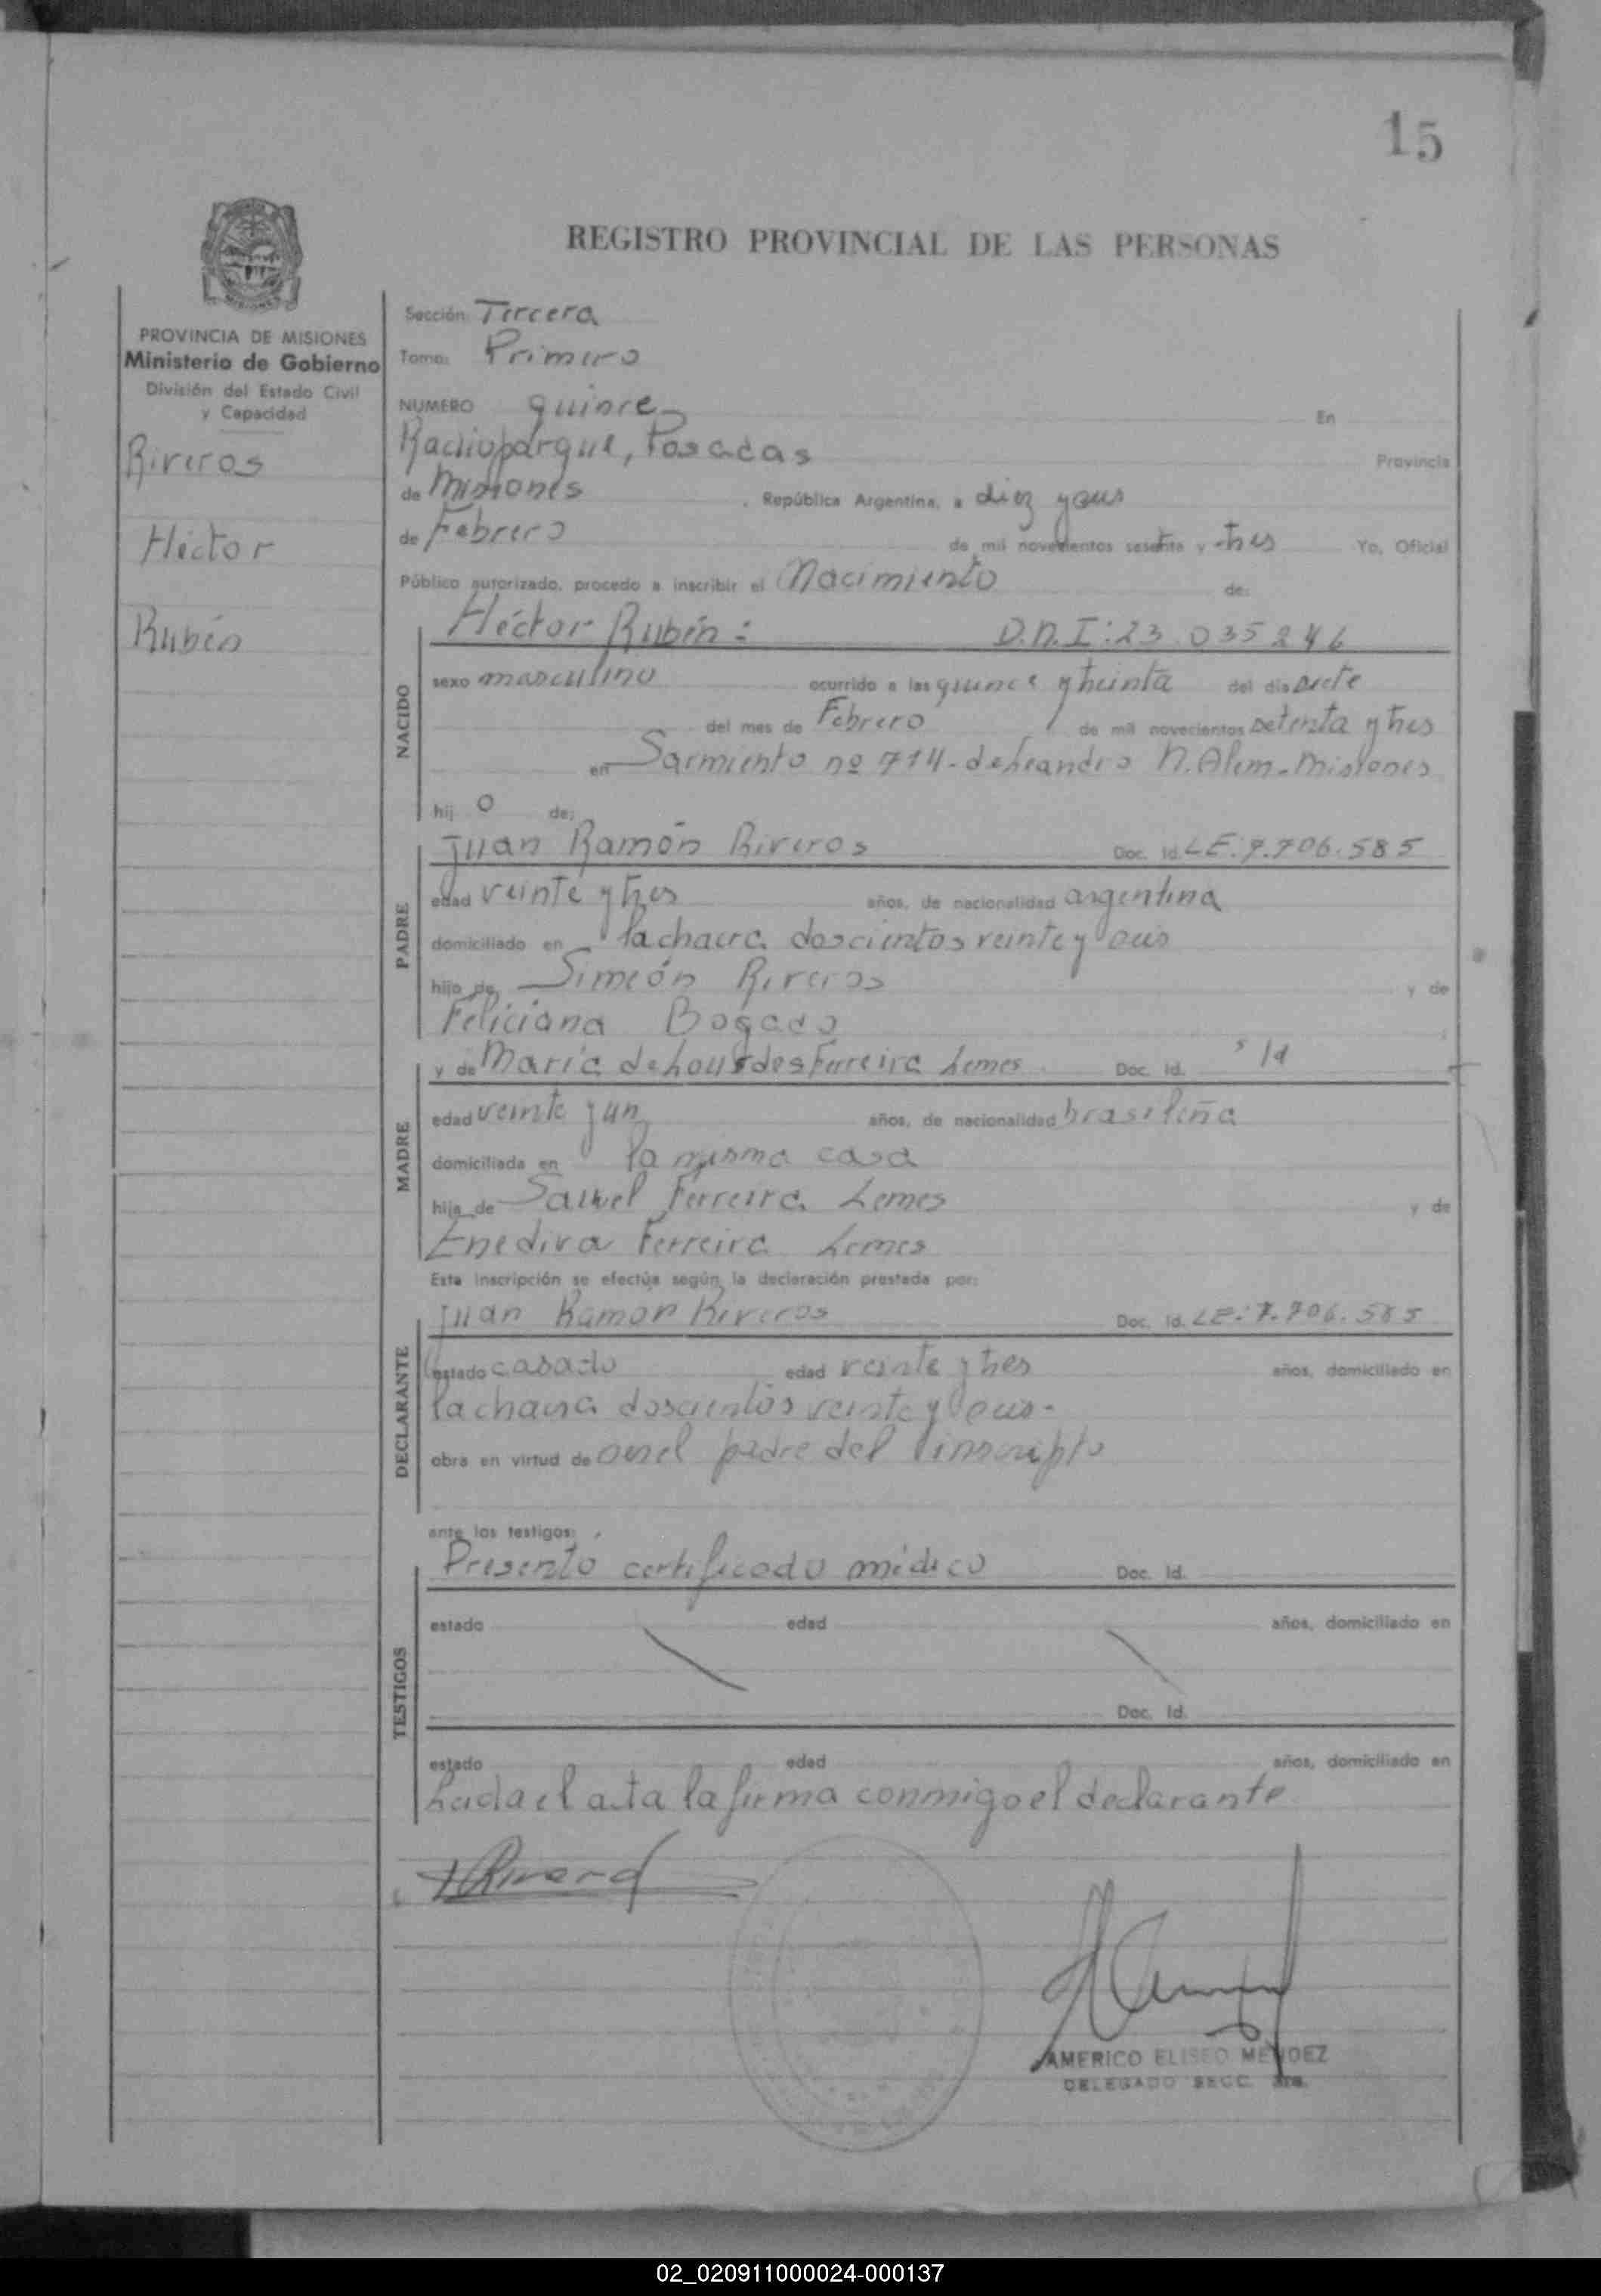 15
REGISTRO PROVINCIAL DE LAS PERSONAS
PROVINCIA DE MISIONES
Ministerio de Gobierno
División del Estado Civil
y Capacidad
Riveros
Héctor
Rubén
Sección: Tercera
Tomo: Primero
NUMERO quince En
Radioparque, Posadas Provincia
de Misiones , República Argentina, a diez y seis
de Febrero de mil novecientos sesenta y tres Yo, Oficial
Público autorizado, procedo a inscribir el Nacimiento de:
NACIDO
Héctor Rubén: D.N.I: 23.035246
sexo masculino ocurrido a las quince y treinta del día siete
del mes de Febrero de mil novecientos setenta y tres
en Sarmiento nº 714 - de Leandro N. Alem - Misiones
hij o de:
PADRE
Juan Ramón Riveros Doc. Id. LE: 7.706.585
edad veinte y tres años, de nacionalidad argentina
domiciliado en la chacra doscientos veinte y seis
hijo de Simeón Riveros y de
Feliciana Bogado
MADRE
y de María de Lourdes Ferreira Lemes Doc. Id.
edad veinte y un años, de nacionalidad brasileña
domiciliada en la misma casa
hija de Ferreira Lemes y de
Enediva Ferreira Lemes
Esta inscripción se efectúa según la declaración prestada por:
DECLARANTE
Juan Ramon Riveros Doc. Id. LE: 7.706.585
estado casado edad veinte y tres años, domiciliado en
la chacra doscientos veinte y seis -
obra en virtud de ser el padre del inscripto
ante los testigos:
TESTIGOS
Presentó certificado médico Doc. Id.
estado edad años, domiciliado en
Doc. Id.
estado edad años, domiciliado en
Leida el acta la firma conmigo el declarante
AMERICO ELISEO MENDEZ
DELEGADO SECC. 3ra.
02_020911000024-000137